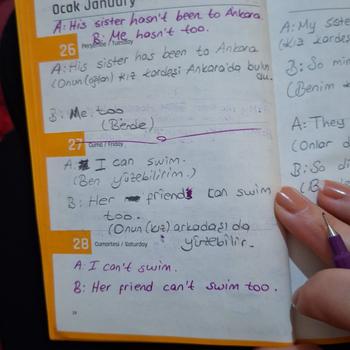 Ocak January
A: His sister hasn't been to Ankara.
B: Me hasn't too.
26
Perşembe / Tuesday
A: His sister has been to Ankara
(Onun (oğlan) kız kardeşi Ankara'da
B: Me too
(Bende)
27
Cuma / Friday
A: I can swim.
(Ben yüzebilirim.)
B: Her friend can swim
too.
(Onun (kız) arkadaşı da
yüzebilir.
28
Cumartesi / Saturday
A: I can't swim.
B: Her friend can't swim too.
A: My siste
(kız kardeş
B: So
(Benim
A: They
(Onlar
B: So di